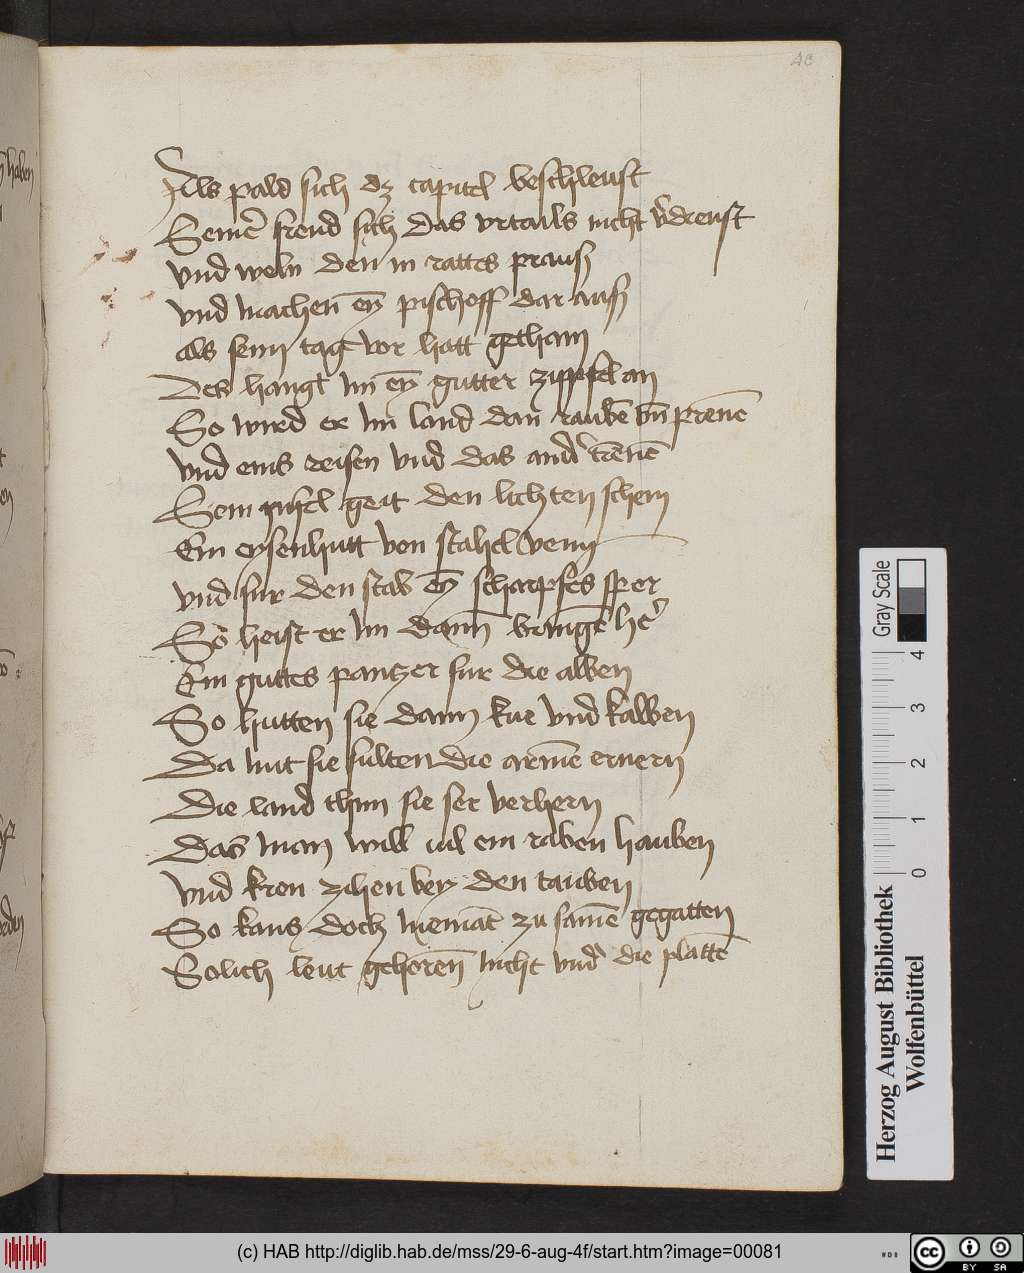 40
Als pald sich dz capitel beschleust
Seinē freud sich das vrtails nicht v̄dreust
vnd weln den in rattes prauß
vnd machen̄ eȳ pischoff dar auß
als senn tag vor hatt gethann
Des hangt im eȳ gutter zippfel an
So wird er im land dan̄ raubē vn̄ prenē
vnd eins reisen vnd das and' trēnē
Sein infel geit den lichten schein
Ein eysenhutt von stahel veiny
vnd fur den stab eȳ scharpfes sper
So heist er im dann̄ bringē hē'
Ein guttes pantzer fur die alben
So hutten sie dann kue vnd kalben
Da mit sie sulten die armē ernern
Die land thun sie ser verhern
Das man will uil ein raben hauben
vnd kron zihen bey den tauben
So kans doch niemāt zu samē gegatten
Solich leut gehoren̄ nicht vnd' die plattē
haben
Gray Scale
4
3
2
1
0
Herzog August Bibliothek
Wolfenbüttel
(c) HAB http://diglib.hab.de/mss/29-6-aug-4f/start.htm?image=00081
WDB
cc
BY SA